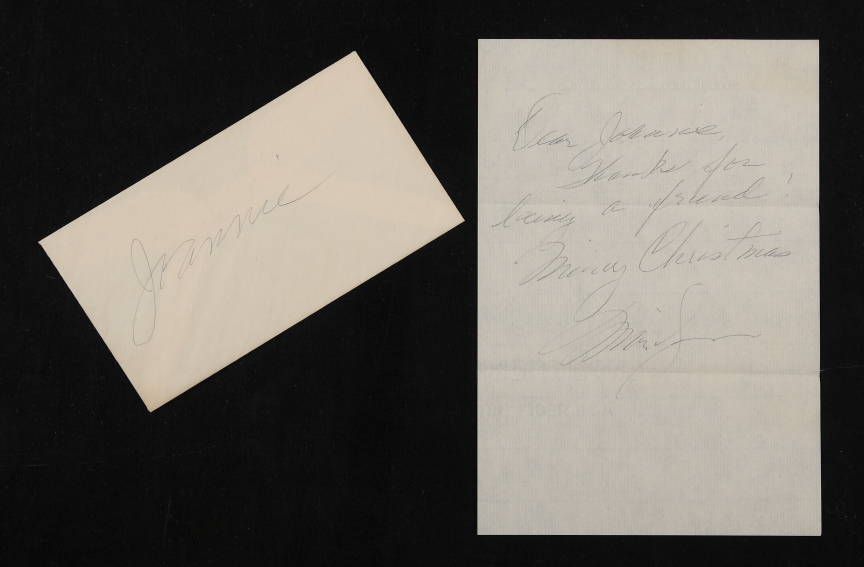 Joannie
Dear Joannie,
Thanks for
being a friend!
Merry Christmas